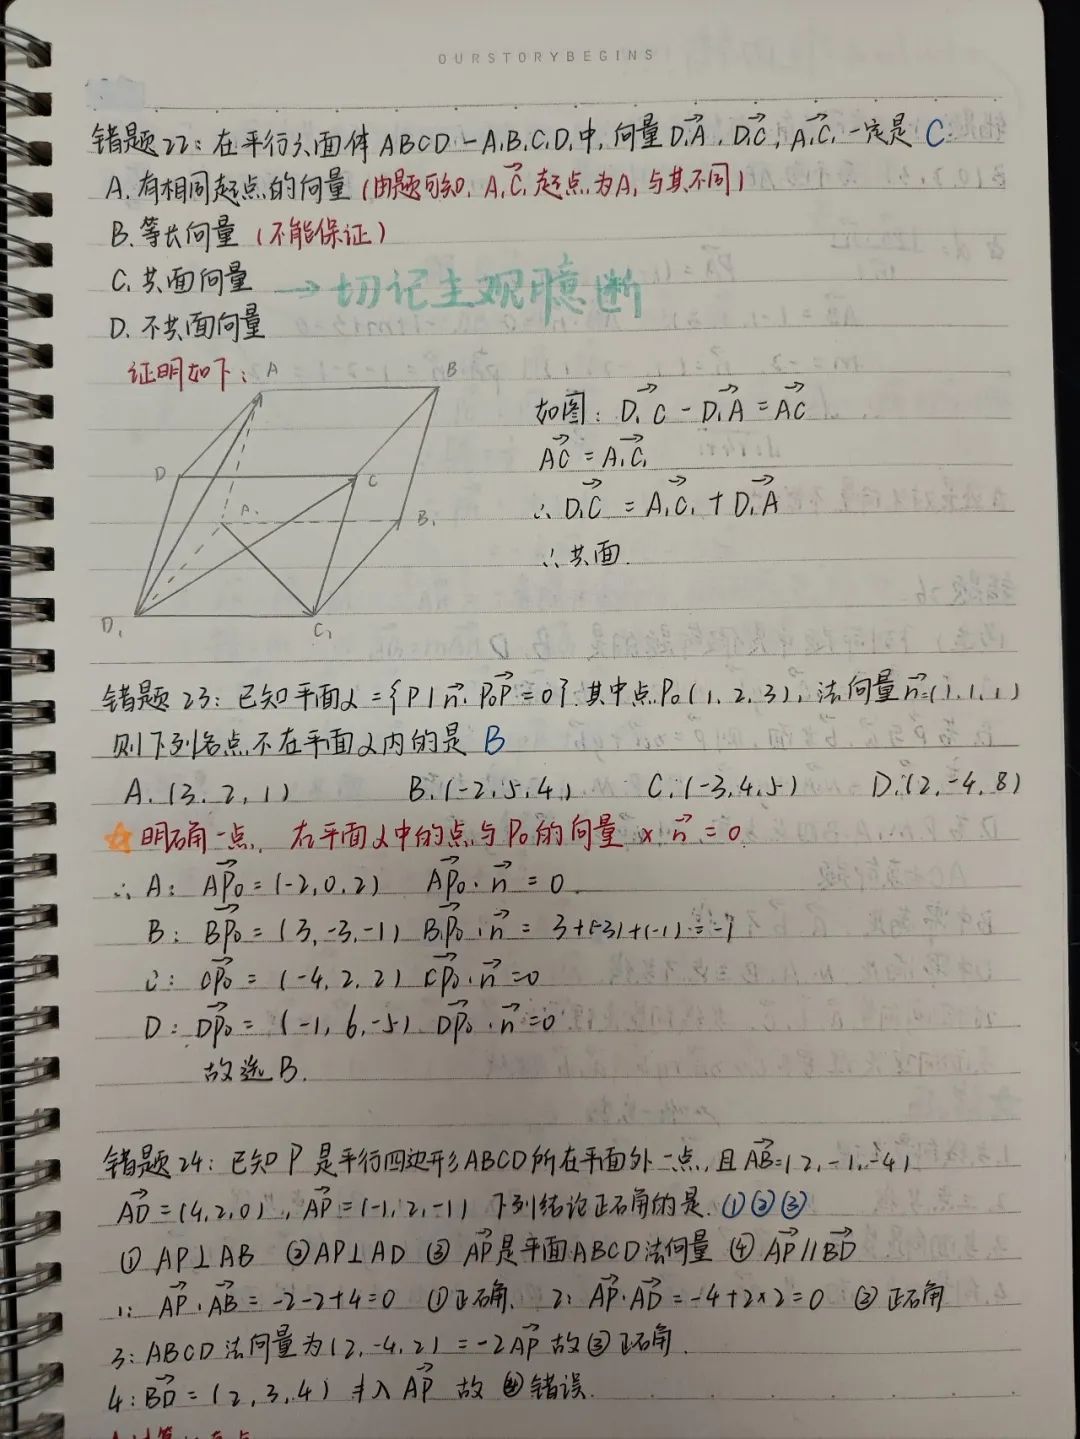 OURSTORYBEGINS
错题22：在平行六面体 ABCD-A₁B₁C₁D₁中，向量D₁A→，D₁C→，A₁C₁→一定是 C
A. 有相同起点的向量（由题可知，A₁C₁→起点为A₁与其不同）
B. 等长向量（不能保证）
C. 共面向量 → 切记主观臆断
D. 不共面向量
证明如下：
A B
D C
A₁ B₁
D₁ C₁
如图：D₁C→ - D₁A→ = AC→
AC→ = A₁C₁→
∴ D₁C→ = A₁C₁→ + D₁A→
∴共面.
错题23：已知平面α={P|n→·P₀P→=0}.其中点P₀(1,2,3)，法向量n→=(1,1,1)
则下列各点不在平面α内的是 B
A.(3,2,1) B.(-2,5,4) C.(-3,4,5) D.(2,-4,8)
☆ 明确一点，在平面α中的点与P₀的向量×n→=0
∴ A: AP₀→=(-2,0,2) AP₀→·n→=0
B: BP₀→=(3,-3,-1) BP₀→·n→=3+(-3)+(-1)=-1
C: CP₀→=(-4,2,2) CP₀→·n→=0
D: DP₀→=(-1,6,-5) DP₀→·n→=0
故选B.
错题24：已知P是平行四边形ABCD所在平面外一点，且AB→=(2,-1,-4)
AD→=(4,2,0)，AP→=(-1,2,-1) 下列结论正确的是.①②③
① AP⊥AB ②AP⊥AD ③AP→是平面ABCD法向量 ④AP→∥BD→
1: AP→·AB→=-2-2+4=0 ①正确. 2: AP→·AD→=-4+2×2=0 ②正确
3: ABCD法向量为(2,-4,2)=-2AP→ 故③正确.
4: BD→=(2,3,4)≠λAP→ 故④错误.